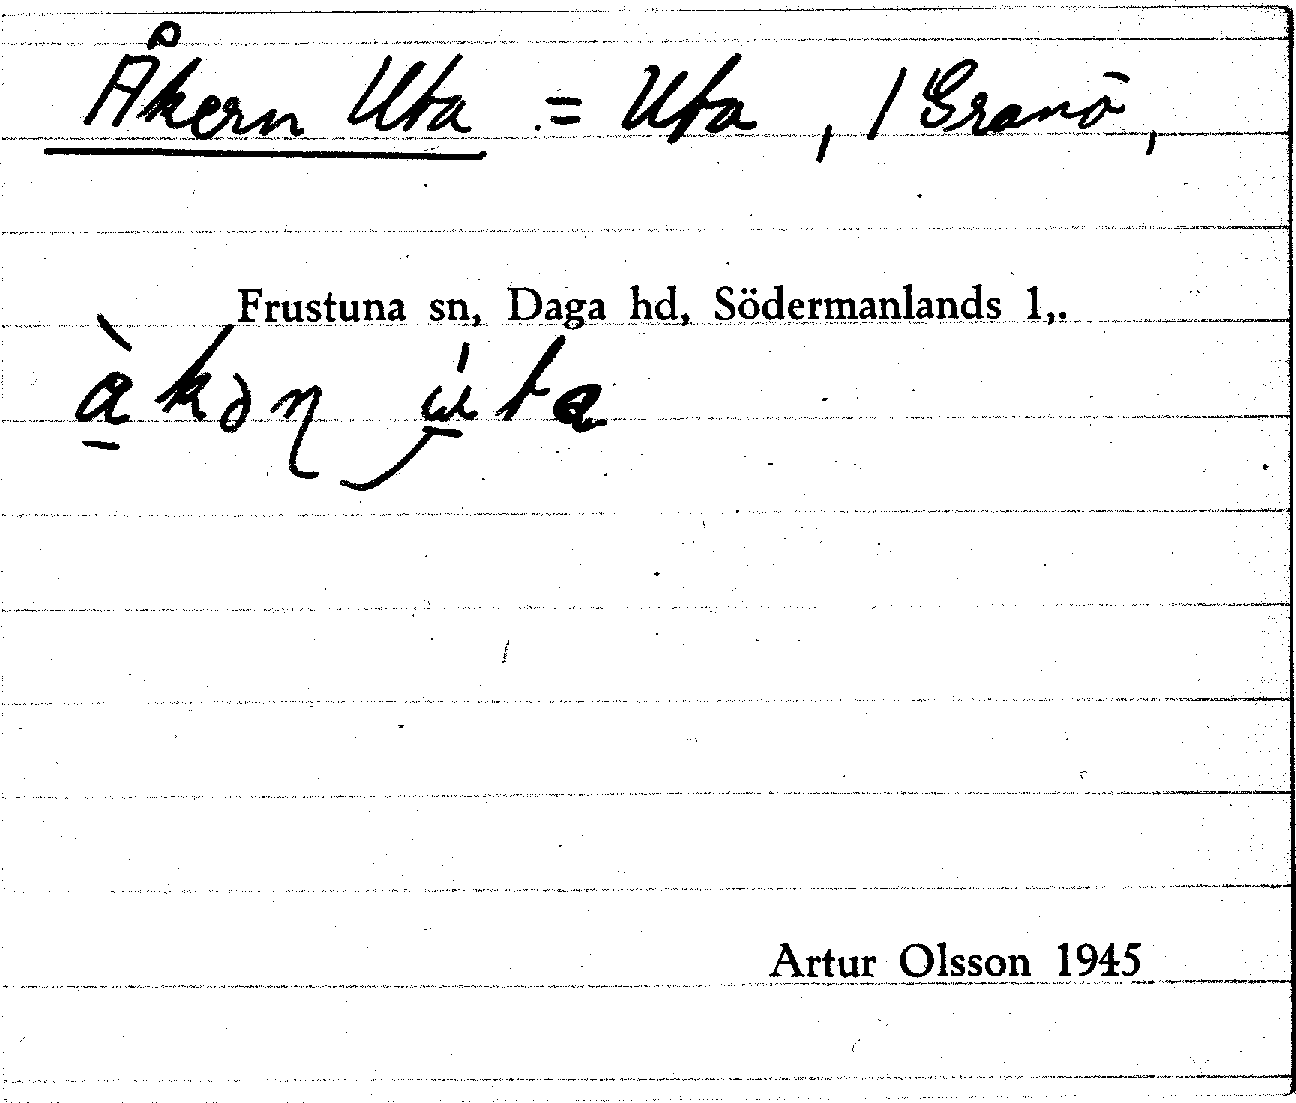 Åkern Uta = Uta, / Granö,
Frustuna sn, Daga hd, Södermanlands l,.
àkəɳ úta
Artur Olsson 1945